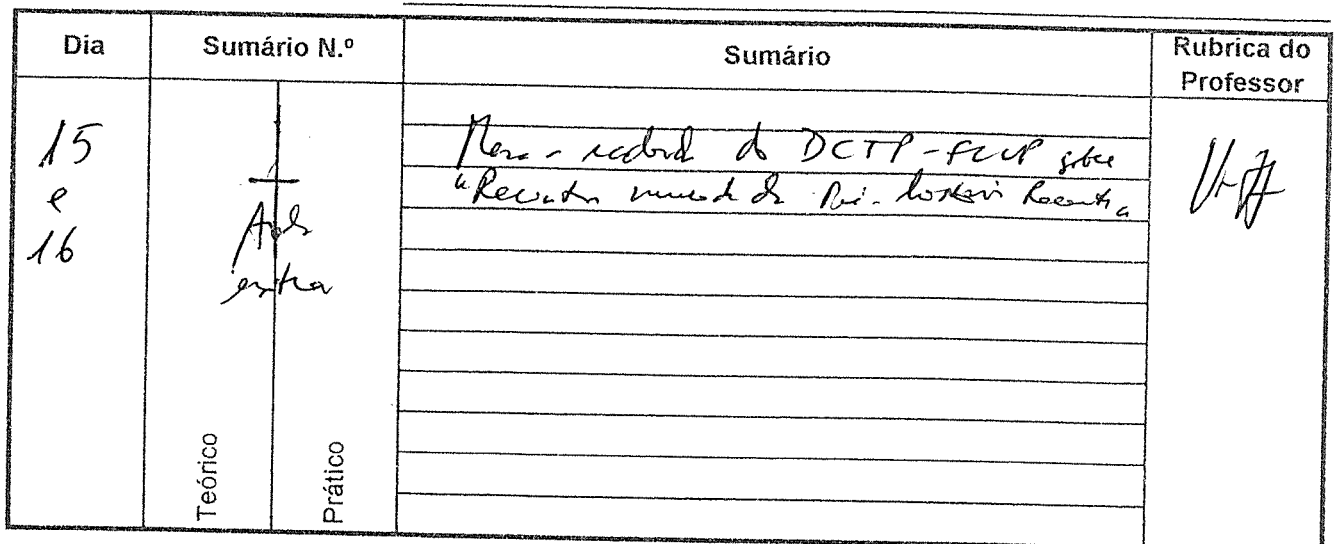 Dia Sumário N.º Sumário Rubrica do Professor
15
e
16
Aula
extra
Mesa-redonda do DCTP-FLUP sobre
"Recentes da Pré-história Recente"
Teórico
Prático